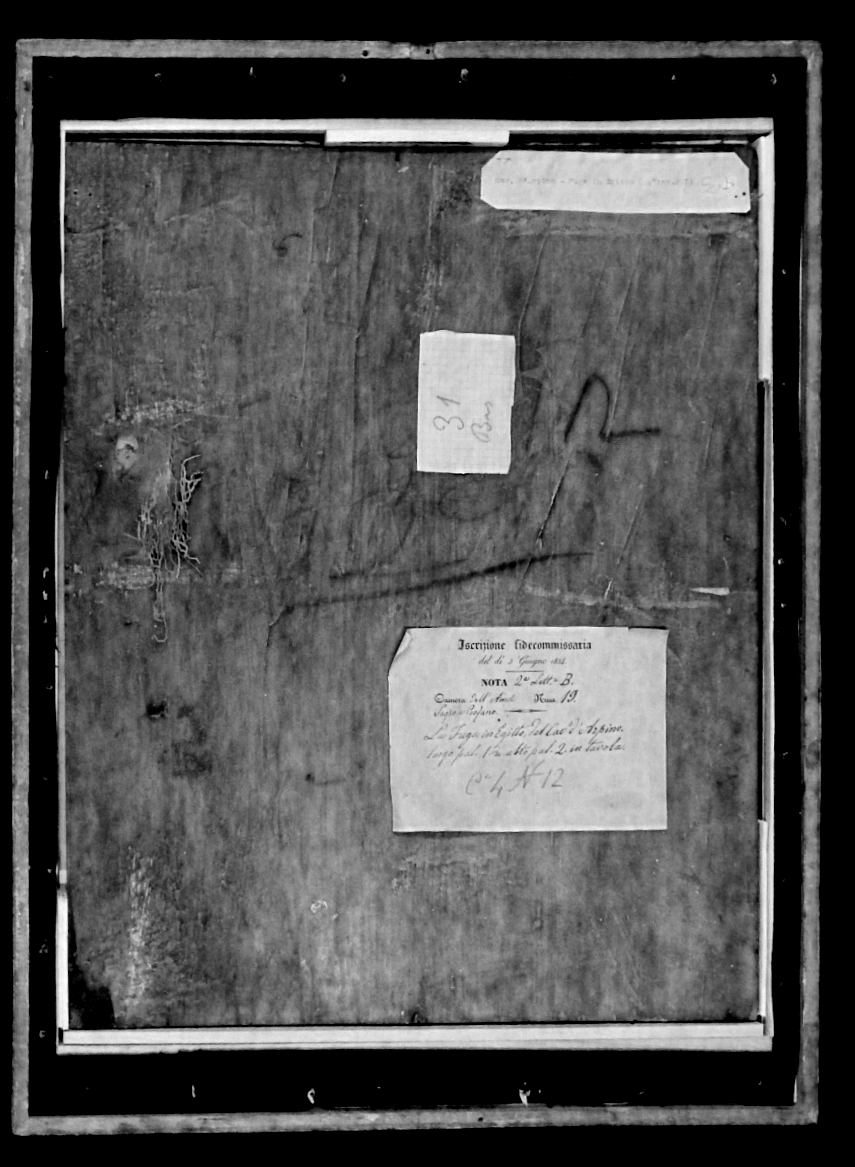 31
Bns
Iscrizione fidecommissaria
del dì 3 Giugno 1834
NOTA 2ª Lett.ª B.
Camera dell' Amor Num. 19.
Sagro e Profano.
La Fuga in Egitto, del Cav.e d'Arpino.
largo pal. 1 ½ alto pal. 2. in tavola.
Cª 4 Nº 12